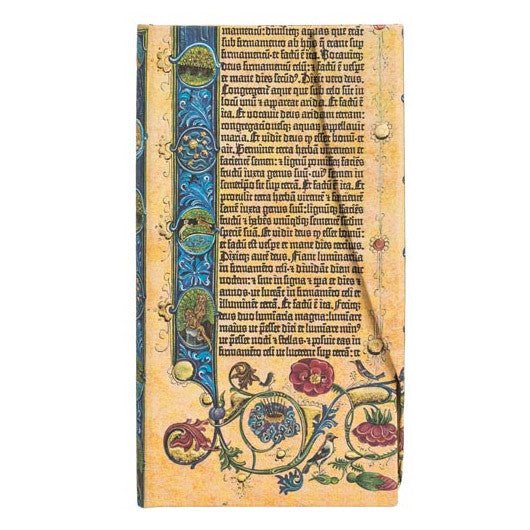 mamentum: diuisitq; aquas que erāt
sub firmamento ab hijs q̄ erant sup
firmamentū: ⁊ factū ē ita. Vocauitq;
deus firmamentū celū: ⁊ factū ē vespe
et mane dies secūdꝰ. Dixit vero deus.
Congregent̄ aque que sub celo sūt in
locū vnū ⁊ appareat arida. Et factū ē
ita. Et vocauit deus aridam terram:
congregacionesq; aquaꝝ appellauit
maria. Et vidit deus ꝙ esset bonū⁊ et
ait. Germinet terra herbā virentem et
facientē semen: ⁊ lignū pomiferū faciēs
fructū iuxta genus suū: cuiꝰ semen in
semetipso sit sup terrā. Et factū ē ita. Et
protulit terra herbā virentē ⁊ facientē
semē iuxta genus suū: lignūq; faciēs
fructū ⁊ habēs vnūqdq; sementē scdm
speciem suā. Et vidit deus ꝙ esset bonū:
et factū est vespe et mane dies tercius.
Dixitq; autē deus. Fiant luminaria
in firmamēto celi ⁊ diuidāt diem ac
noctē: ⁊ sint in signa ⁊ tpa ⁊ dies ⁊
annos: ut luceāt in firmamēto celi et
illuminēt terrā. Et factū ē ita. Fecitq;
deus duo lumīaria magna: lumīare
maius ut p̄esset diei et lumīare minꝰ
ut p̄esset nocti ⁊ stellas: ⁊ posuit eas in
firmamēto celi ut lucerent sup terrā: et